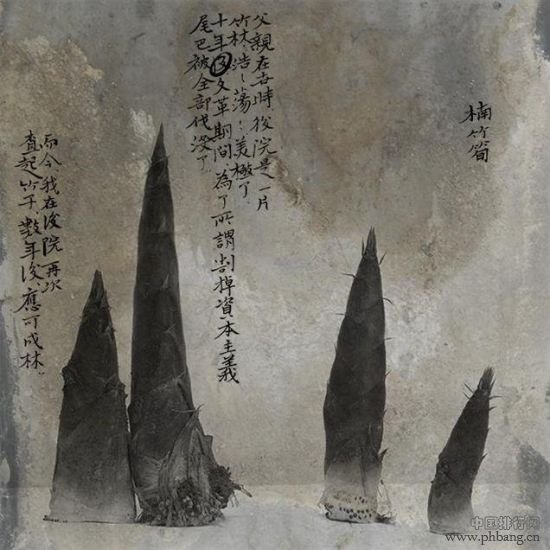 楠竹筍
父親在世時，後院是一片
竹林，浩〻蕩〻，美極了
十年文革期間，為了所謂割掉資本主義
尾巴被全部伐没了
而今，我在後院再次
起竹子，數年後，應可成林。
中国排行网
www.phbang.cn